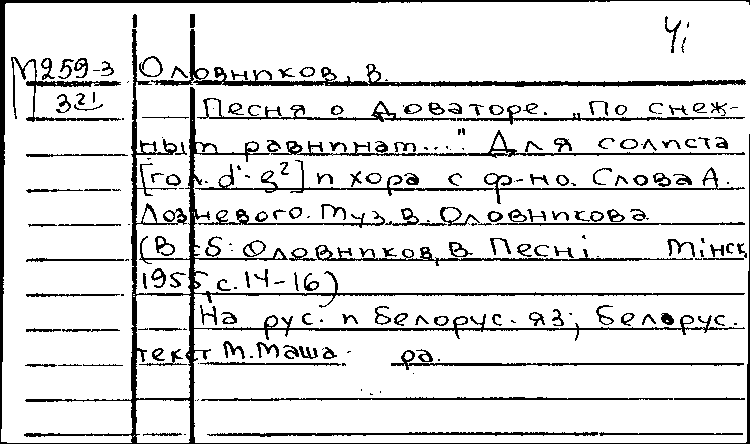 Чi
М259-3 Оловников, В.
321 Песня о Доваторе. „По снеж-
ным равнинам...." Для солиста
[гол. d¹-g²] и хора с ф-но. Слова А.
Лозневого. Муз. В. Оловникова
(В сб: Оловников, В. Песнi. Мiнск,
1955, с. 14-16)
На рус. и белорус. яз; белорус.
текст М. Маша ра.